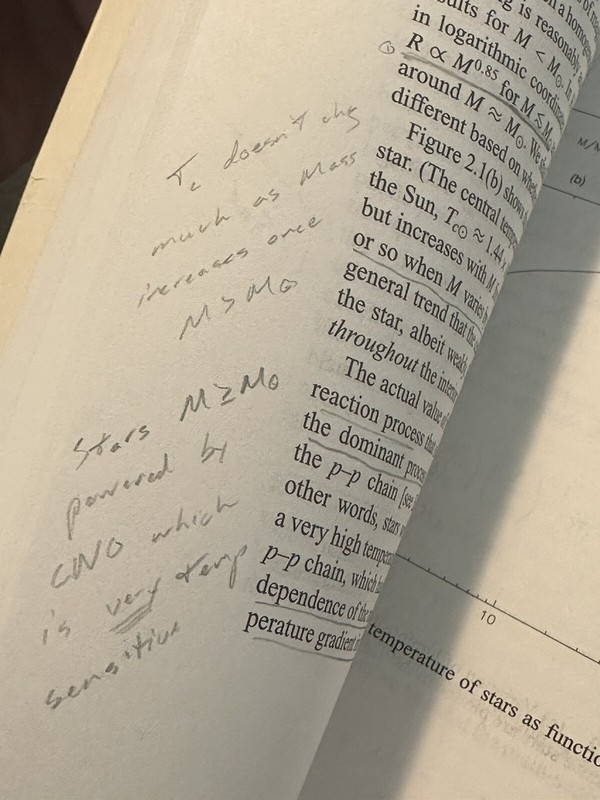 ng is reasonably
sults for M < M⊙. In
in logarithmic coordin
R ∝ M^0.85 for M ≲ M
around M ≈ M⊙. We
different based on whe
Figure 2.1(b) shows
star. (The central temp
the Sun, Tc⊙ ≈ 1.44
but increases with M
or so when M varies
general trend that the
the star, albeit weak
throughout the inter
The actual value
reaction process tha
the dominant proce
the p–p chain [see
other words, stars
a very high tempera
p–p chain, which
dependence of the
perature gradient i
Tc doesn't chg
much as Mass
increases once
M > M⊙
Stars M ≥ M⊙
powered by
CNO which
is very temp
sensitive
M/M
(b)
10
temperature of stars as functio